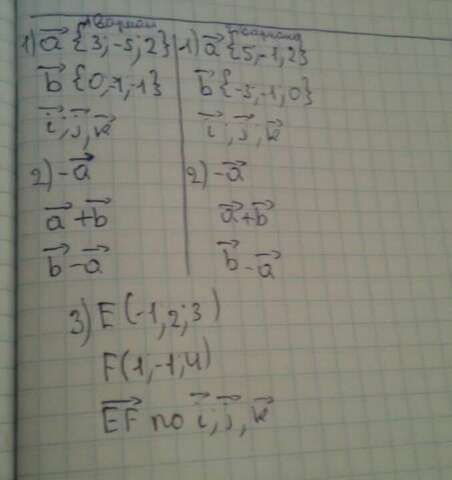 1 вариант
1) a⃗ {3; -5; 2}
b⃗ {0, -1, -1}
i⃗; j⃗, k⃗
2) -a⃗
a⃗ + b⃗
b⃗ - a⃗
вариант
1) a⃗ {5, -1, 2}
b⃗ {-3, -1, 0}
i⃗; j⃗, k⃗
2) -a⃗
a⃗ + b⃗
b⃗ - a⃗
3) E (-1, 2; 3)
F (1, -1, 4)
EF⃗ по i⃗, j⃗, k⃗